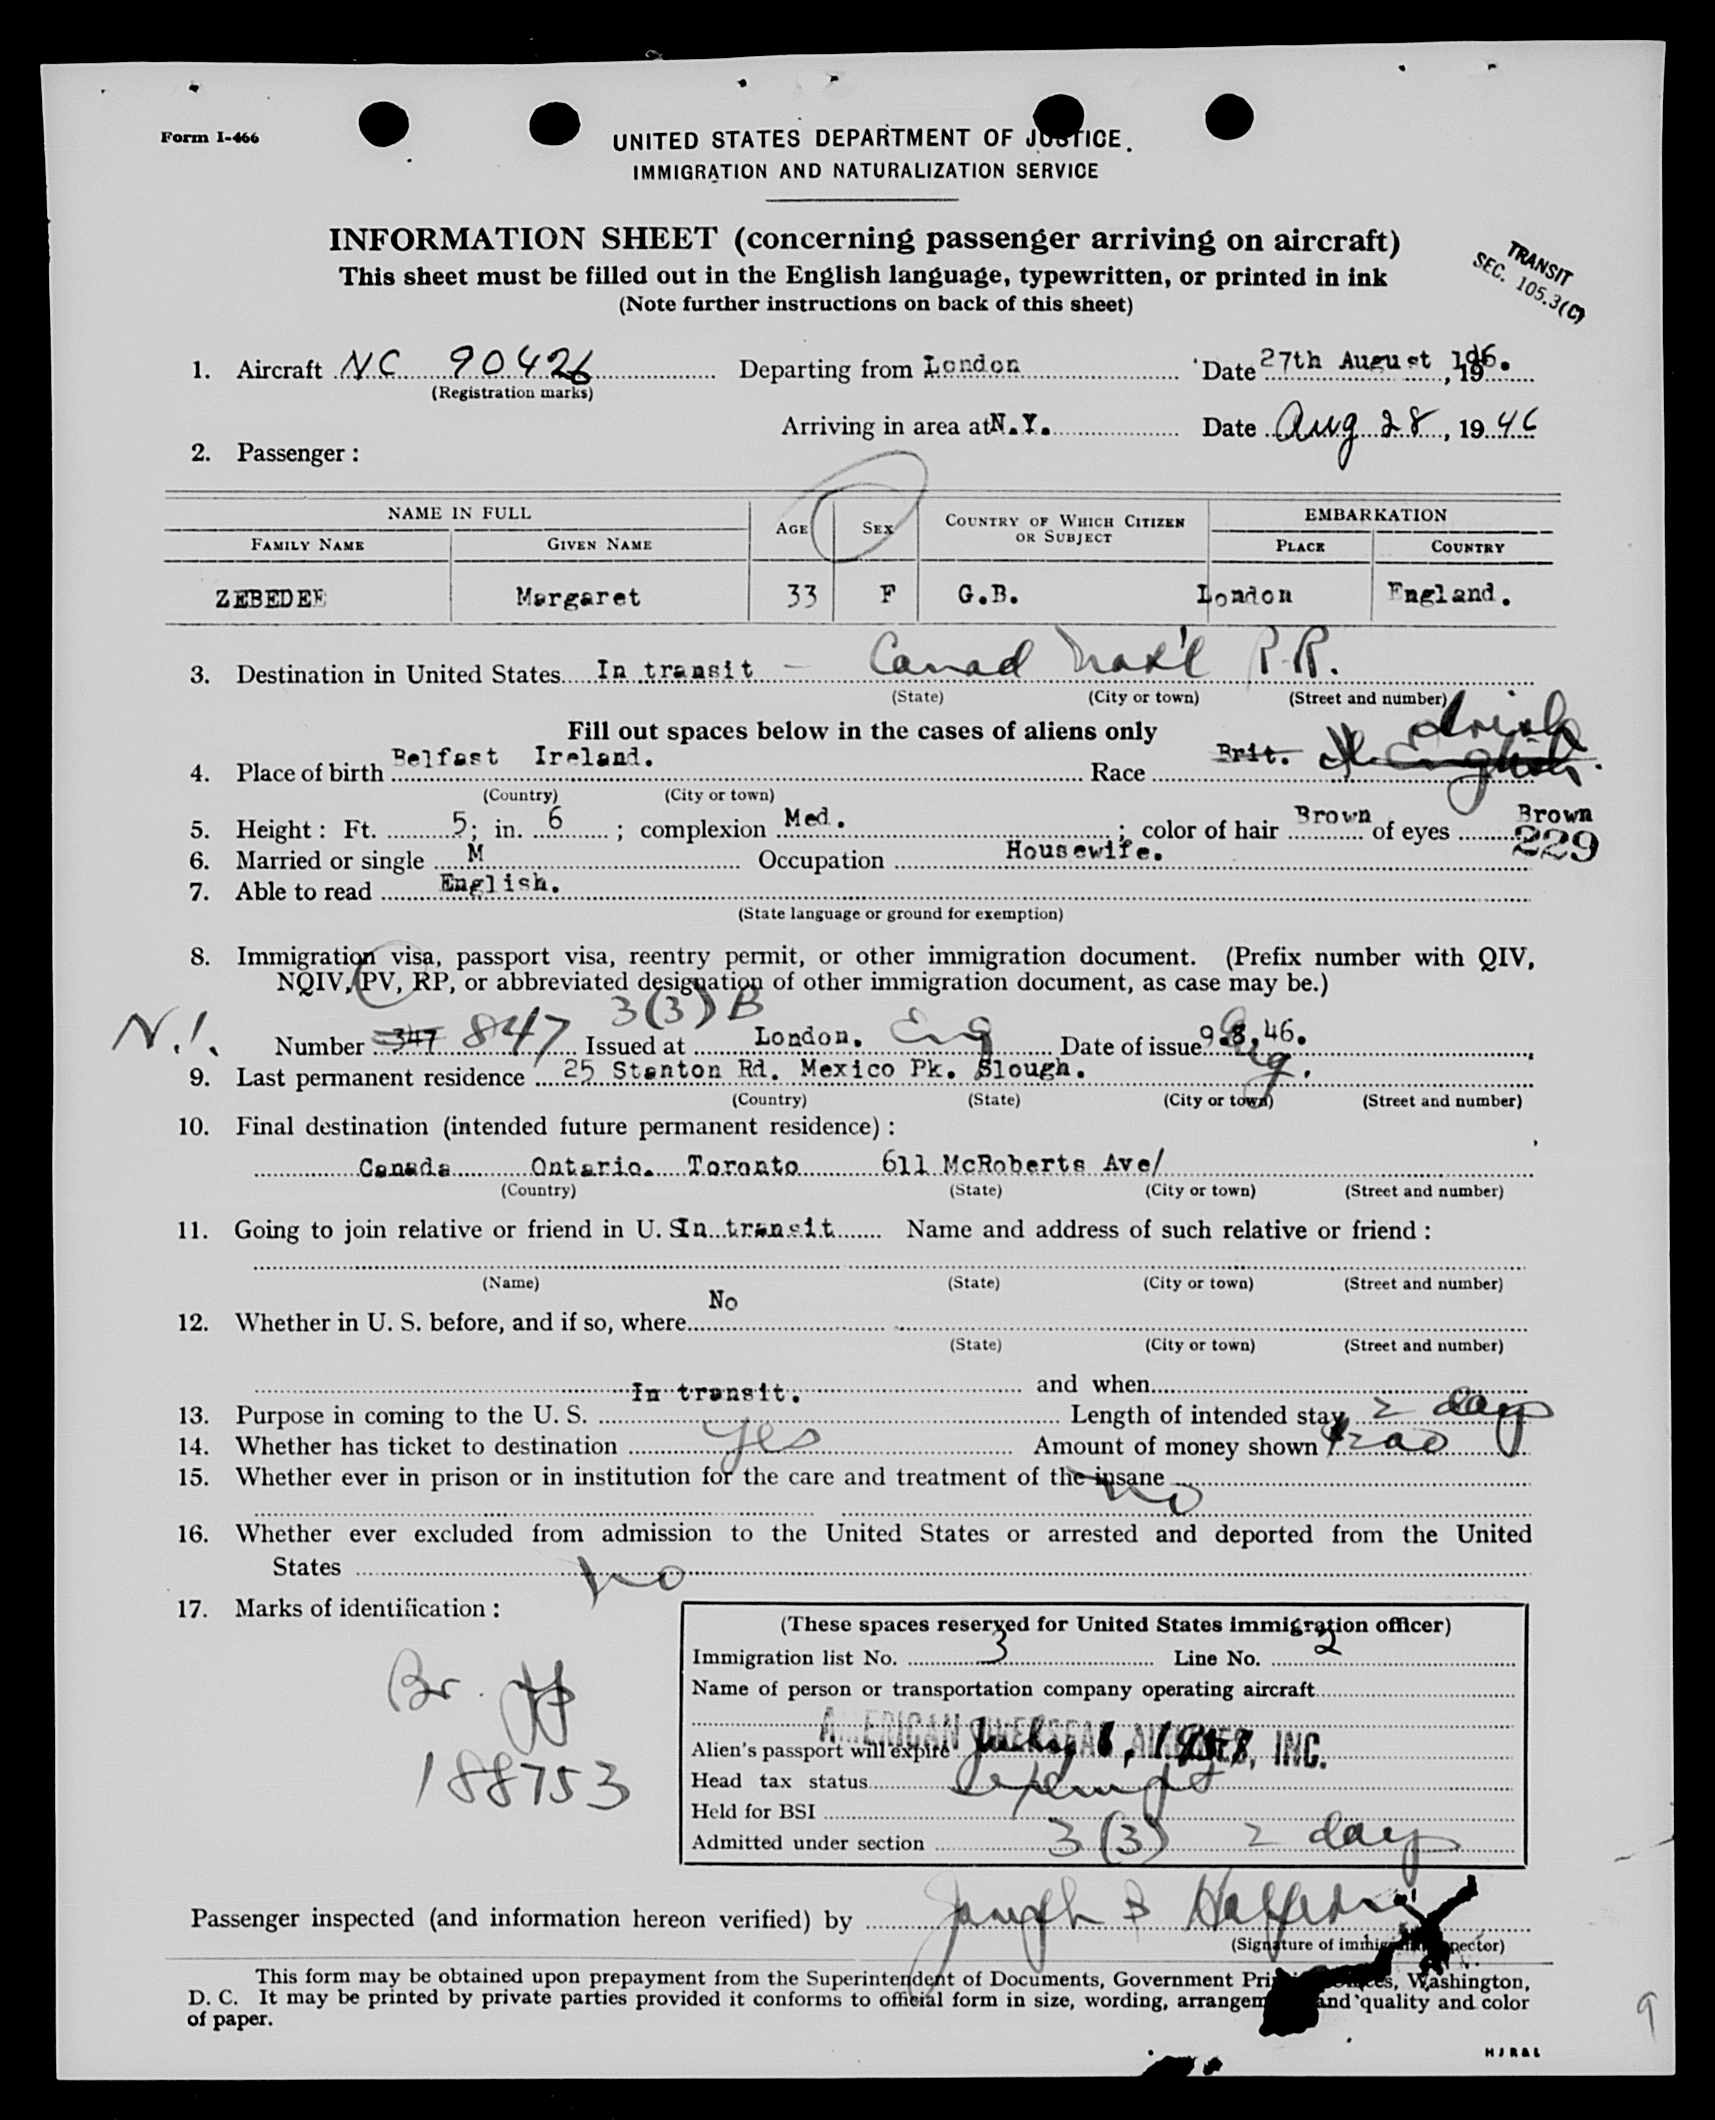 Form I-466
UNITED STATES DEPARTMENT OF JUSTICE.
IMMIGRATION AND NATURALIZATION SERVICE
INFORMATION SHEET (concerning passenger arriving on aircraft)
This sheet must be filled out in the English language, typewritten, or printed in ink
(Note further instructions on back of this sheet)
TRANSIT
SEC. 105.3(C)
1. Aircraft NC 90426 Departing from London Date 27th August 1946.
(Registration marks)
Arriving in area at N.Y. Date Aug 28, 1946
2. Passenger:
NAME IN FULL AGE SEX COUNTRY OF WHICH CITIZEN OR SUBJECT EMBARKATION
FAMILY NAME GIVEN NAME PLACE COUNTRY
ZEBEDEE Margaret 33 F G.B. London England.
3. Destination in United States In transit - Canad Nat'l R.R.
(State) (City or town) (Street and number)
Fill out spaces below in the cases of aliens only
Irish
4. Place of birth Belfast Ireland. Race Brit. English
(Country) (City or town)
5. Height: Ft. 5; in. 6; complexion Med.; color of hair Brown of eyes Brown
229
6. Married or single M Occupation Housewife.
7. Able to read English.
(State language or ground for exemption)
8. Immigration visa, passport visa, reentry permit, or other immigration document. (Prefix number with QIV,
NQIV, PV, RP, or abbreviated designation of other immigration document, as case may be.)
3(3) B
N.I. Number 347 847 Issued at London. Eng Date of issue 9.8.46. Aug.
9. Last permanent residence 25 Stanton Rd. Mexico Pk. Slough.
(Country) (State) (City or town) (Street and number)
10. Final destination (intended future permanent residence):
Canada Ontario. Toronto 611 McRoberts Ave/
(Country) (State) (City or town) (Street and number)
11. Going to join relative or friend in U. S. In transit Name and address of such relative or friend:
(Name) (State) (City or town) (Street and number)
No
12. Whether in U. S. before, and if so, where
(State) (City or town) (Street and number)
In transit. and when
13. Purpose in coming to the U. S. Length of intended stay 2 days
14. Whether has ticket to destination Yes Amount of money shown
15. Whether ever in prison or in institution for the care and treatment of the insane
no
16. Whether ever excluded from admission to the United States or arrested and deported from the United
States no
17. Marks of identification:
Br. pp
188753
(These spaces reserved for United States immigration officer)
Immigration list No. 3 Line No. 2
Name of person or transportation company operating aircraft
AMERICAN OVERSEAS AIRLINES, INC.
Alien's passport will expire July
Head tax status exempt
Held for BSI
Admitted under section 3(3) 2 days
Passenger inspected (and information hereon verified) by Joseph B
(Signature of immigrant inspector)
This form may be obtained upon prepayment from the Superintendent of Documents, Government Printing Offices, Washington,
D. C. It may be printed by private parties provided it conforms to official form in size, wording, arrangement and quality and color
of paper.
9